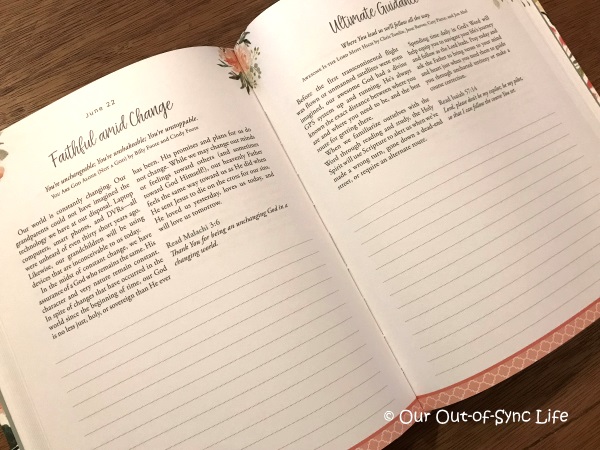 June 22
Faithful amid Change
You're unchangeable; You're unshakeable; You're unstoppable.
You Are God Alone (Not a God) by Billy Foote and Cindy Foote
Our world is constantly changing. Our
grandparents could not have imagined the
technology we have at our disposal. Laptop
computers, smart phones, and DVRs—all
were unheard of even thirty short years ago.
Likewise, our grandchildren will be using
devices that are inconceivable to us today.
In the midst of constant change, we have
assurance of a God who remains the same. His
character and very nature remain constant.
In spite of changes that have occurred in the
world since the beginning of time, our God
is no less just, holy, or sovereign than He ever
has been. His promises and plans for us do
not change. While we may change our minds
or feelings toward others (and sometimes
toward God Himself), our heavenly Father
feels the same way toward us as He did when
He sent Jesus to die on the cross for our sins.
He loved us yesterday, loves us today, and
will love us tomorrow.
Read Malachi 3:6
Thank You for being an unchanging God in a
changing world.
Ultimate Guidance
Where You lead us we'll follow all the way.
Awesome Is the Lord Most High by Chris Tomlin, Jesse Reeves, Cary Pierce, and Jon Abel
Before the first transcontinental flight
was flown or unmanned satellites were even
imagined, our awesome God had a divine
GPS system up and running. He's always
known the exact distance between where you
are and where you need to be, and the best
route for getting there.
When we familiarize ourselves with the
Word through reading and study, the Holy
Spirit will use Scripture to alert us when we've
made a wrong turn, gone down a dead-end
street, or require an alternate route.
Spending time daily in God's Word will
help equip you to navigate your life's journey
and follow as the Lord leads. Pray today and
ask the Father to bring verses to your mind
and heart just when you need them to guide
you through unchartered territory or make a
course correction.
Read Isaiah 57:14
Lord, please don't be my copilot, be my pilot,
so that I can follow the course You set.
© Our Out-of-Sync Life